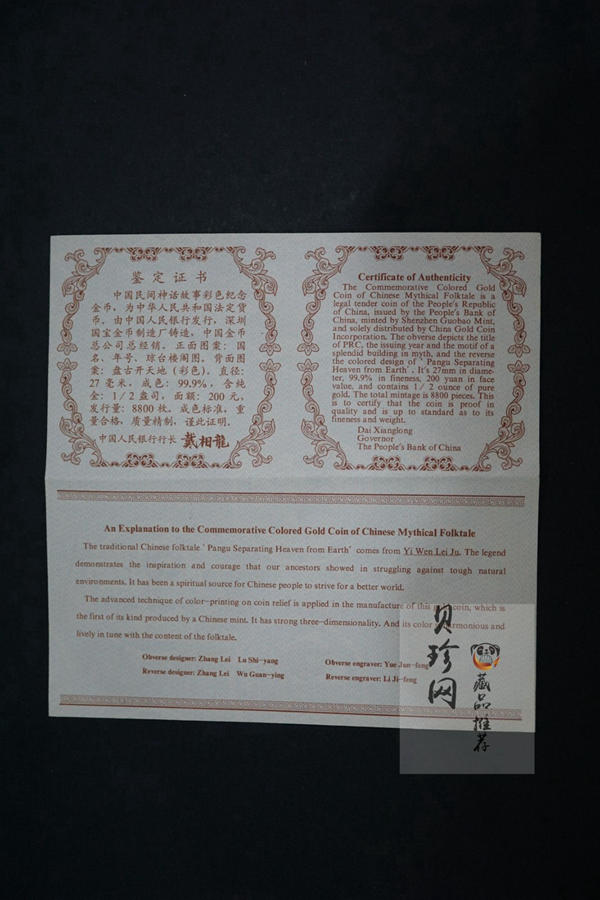 鉴定证书
中国民间神话故事彩色纪念
金币，为中华人民共和国法定货
币，由中国人民银行发行，深圳
国宝金币制造厂铸造，中国金币
总公司总经销。正面图案：国
名、年号、琼台楼阁图，背面图
案：盘古开天地（彩色），直径：
27毫米，成色：99.9%，含纯
金：1／2盎司，面额：200元，
发行量：8800枚。成色标准，重
量合格，质量精制，谨此证明。
中国人民银行行长 戴相龍
Certificate of Authenticity
The Commemorative Colored Gold
Coin of Chinese Mythical Folktale is a
legal tender coin of the People's Republic
of China, issued by the People's Bank of
China, minted by Shenzhen Guobao Mint,
and solely distributed by China Gold Coin
Incorporation. The obverse depicts the title
of PRC, the issuing year and the motif of a
splendid building in myth, and the reverse
the colored design of ‵Pangu Separating
Heaven from Earth′. It's 27mm in diame-
ter, 99.9% in fineness, 200 yuan in face
value, and contains 1／2 ounce of pure
gold. The total mintage is 8800 pieces. This
is to certify that the coin is proof in
quality and is up to standard as to its
fineness and weight.
Dai Xianglong
Governor
The People's Bank of China
An Explanation to the Commemorative Colored Gold Coin of Chinese Mythical Folktale
The traditional Chinese folktale ‵Pangu Separating Heaven from Earth′ comes from Yi Wen Lei Ju. The legend
demonstrates the inspiration and courage that our ancestors showed in struggling against tough natural
environments. It has been a spiritual source for Chinese people to strive for a better world.
The advanced technique of color-printing on coin relief is applied in the manufacture of this coin, which is
the first of its kind produced by a Chinese mint. It has strong three-dimensionality. And its color harmonious and
lively in tune with the content of the folktale.
Obverse designer: Zhang Lei Lu Shi-yang
Obverse engraver: Yue Jun-feng
Reverse designer: Zhang Lei Wu Guan-ying
Reverse engraver: Li Ji-feng
贝珍网
藏品推荐